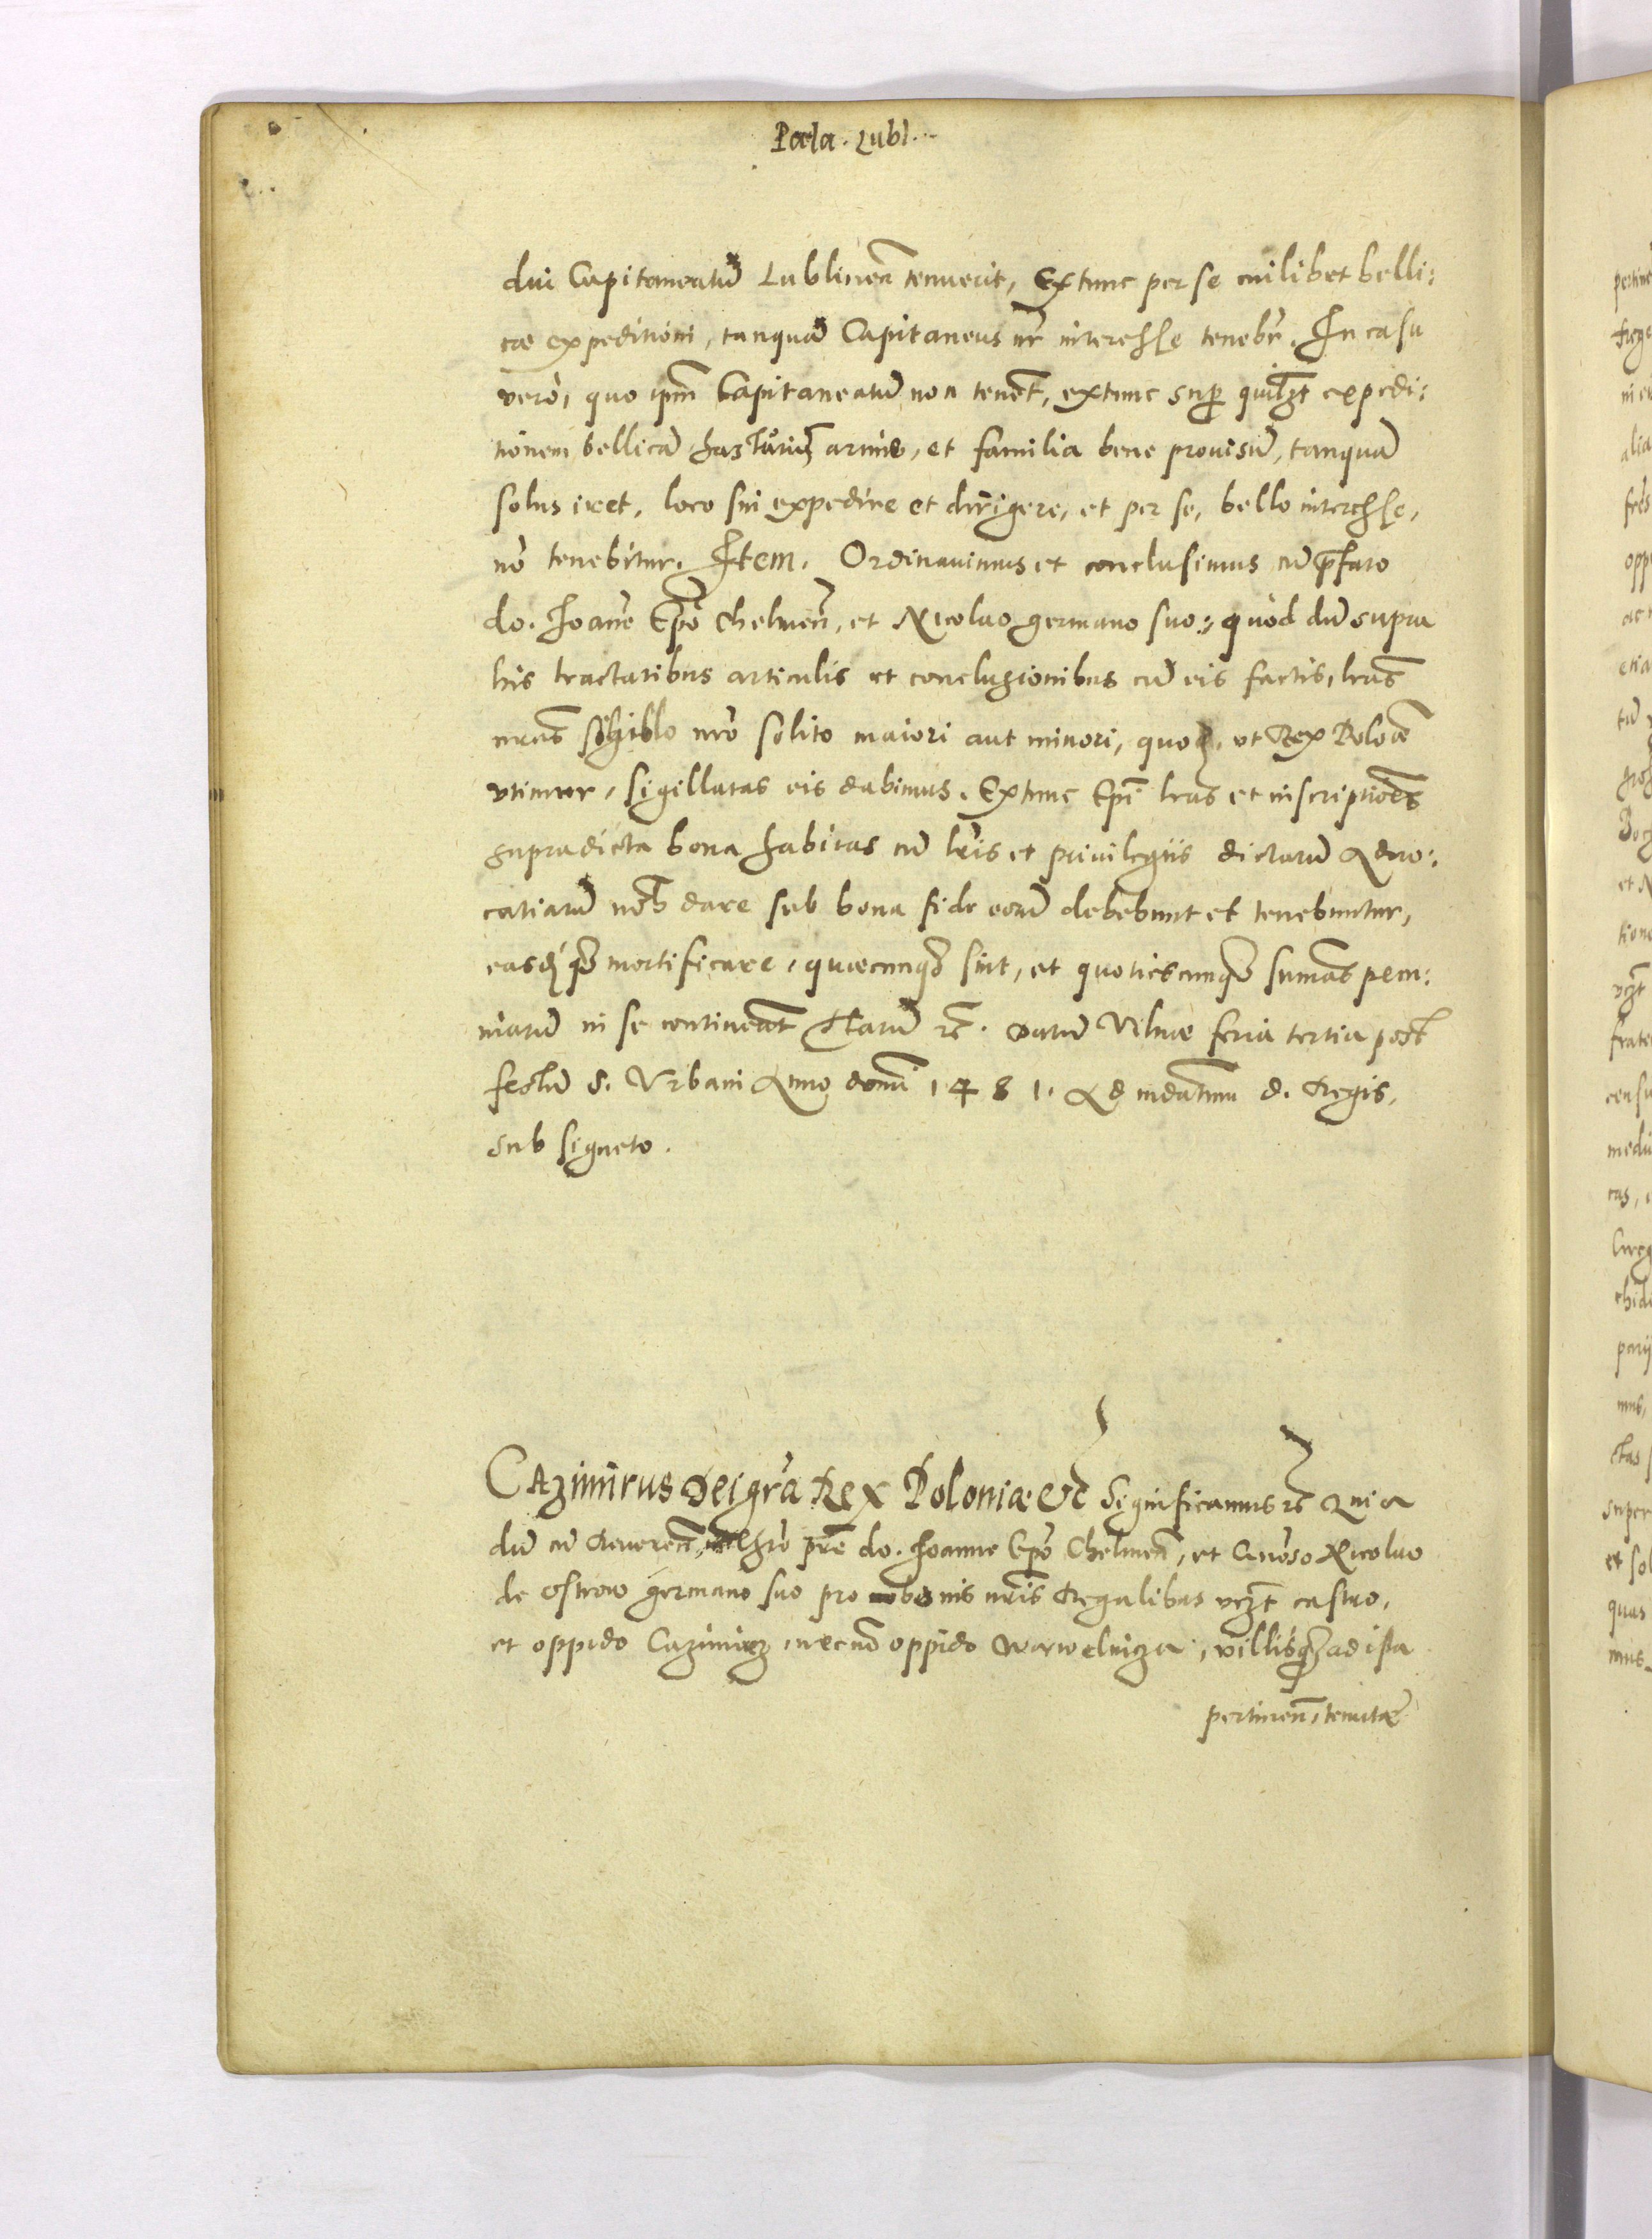 Pala. Lubl...
dui Capitaneatũ Lublineñ tenuerit, Extunc per se cuilibet belli:
cæ expeditioni, tanquã Capitaneus nr̃ interesse tenebr̃. In casu
vero, quo ip̃m Capitaneatum non teneт̃, extunc sup̃ quãlꝫt expedi:
tionem bellicã hastariũ armis, et familia bene prouisũ, tanquã
solus iret, loco sui expedire et dirigere, et per se, bello interesse,
nõ tenebitur. Item. Ordinauimus et conclusimus cũ p̃fato
do. Joanne Ep̃o Chelmeñ, et Nicolao germano suo: quod dũ supra
his tractatibus articulis et conclusionibus cũ eis factis, lr̃as
nr̃as sigillo nr̃o solito maiori aut minori, quo, vt Rex Polo͞æ
vtimur, sigillatas eis dabimus. Extunc Ep̃i lr̃as et inscriptiões
supradicta bona habitas cũ lr̃is et priuilegiis dictarũ Aduo:
catiarũ nob̃ dare sub bona fide eorũ debebunt et tenebuntur,
easqꝫ mortificare, quæcunqꝫ sint, et quotiescunqꝫ sum̃as pecu:
niarũ in se contineãt Harũ ꝛc̃. Datũ Vilnæ feria tertia post
festũ S. Vrbani Anno domi͂ 1481. Ad mdatum d. Regis,
sub signeto.
CAzimirus Dei gr̃a Rex Poloniæ &c̃ Significamus ꝛc̃ Quia
dũ cũ Reuereñ, Chr̃o pr̃e do. Joanne Ep̃o Chelmeñ, et Gñroso Nicolao
de Ostrow germano suo pro bonis nr̃is Regalibus vcꝫt castro,
et oppido Cazimirz, necnõ oppido Warwelnicza, villisqꝫ ad ip̃a
pertineñ, tenutæ